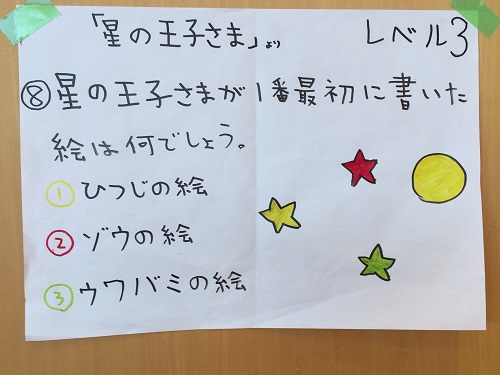 「星の王子さま」より レベル3
⑧星の王子さまが1番最初に書いた
絵は何でしょう。
①ひつじの絵
②ゾウの絵
③ウワバミの絵